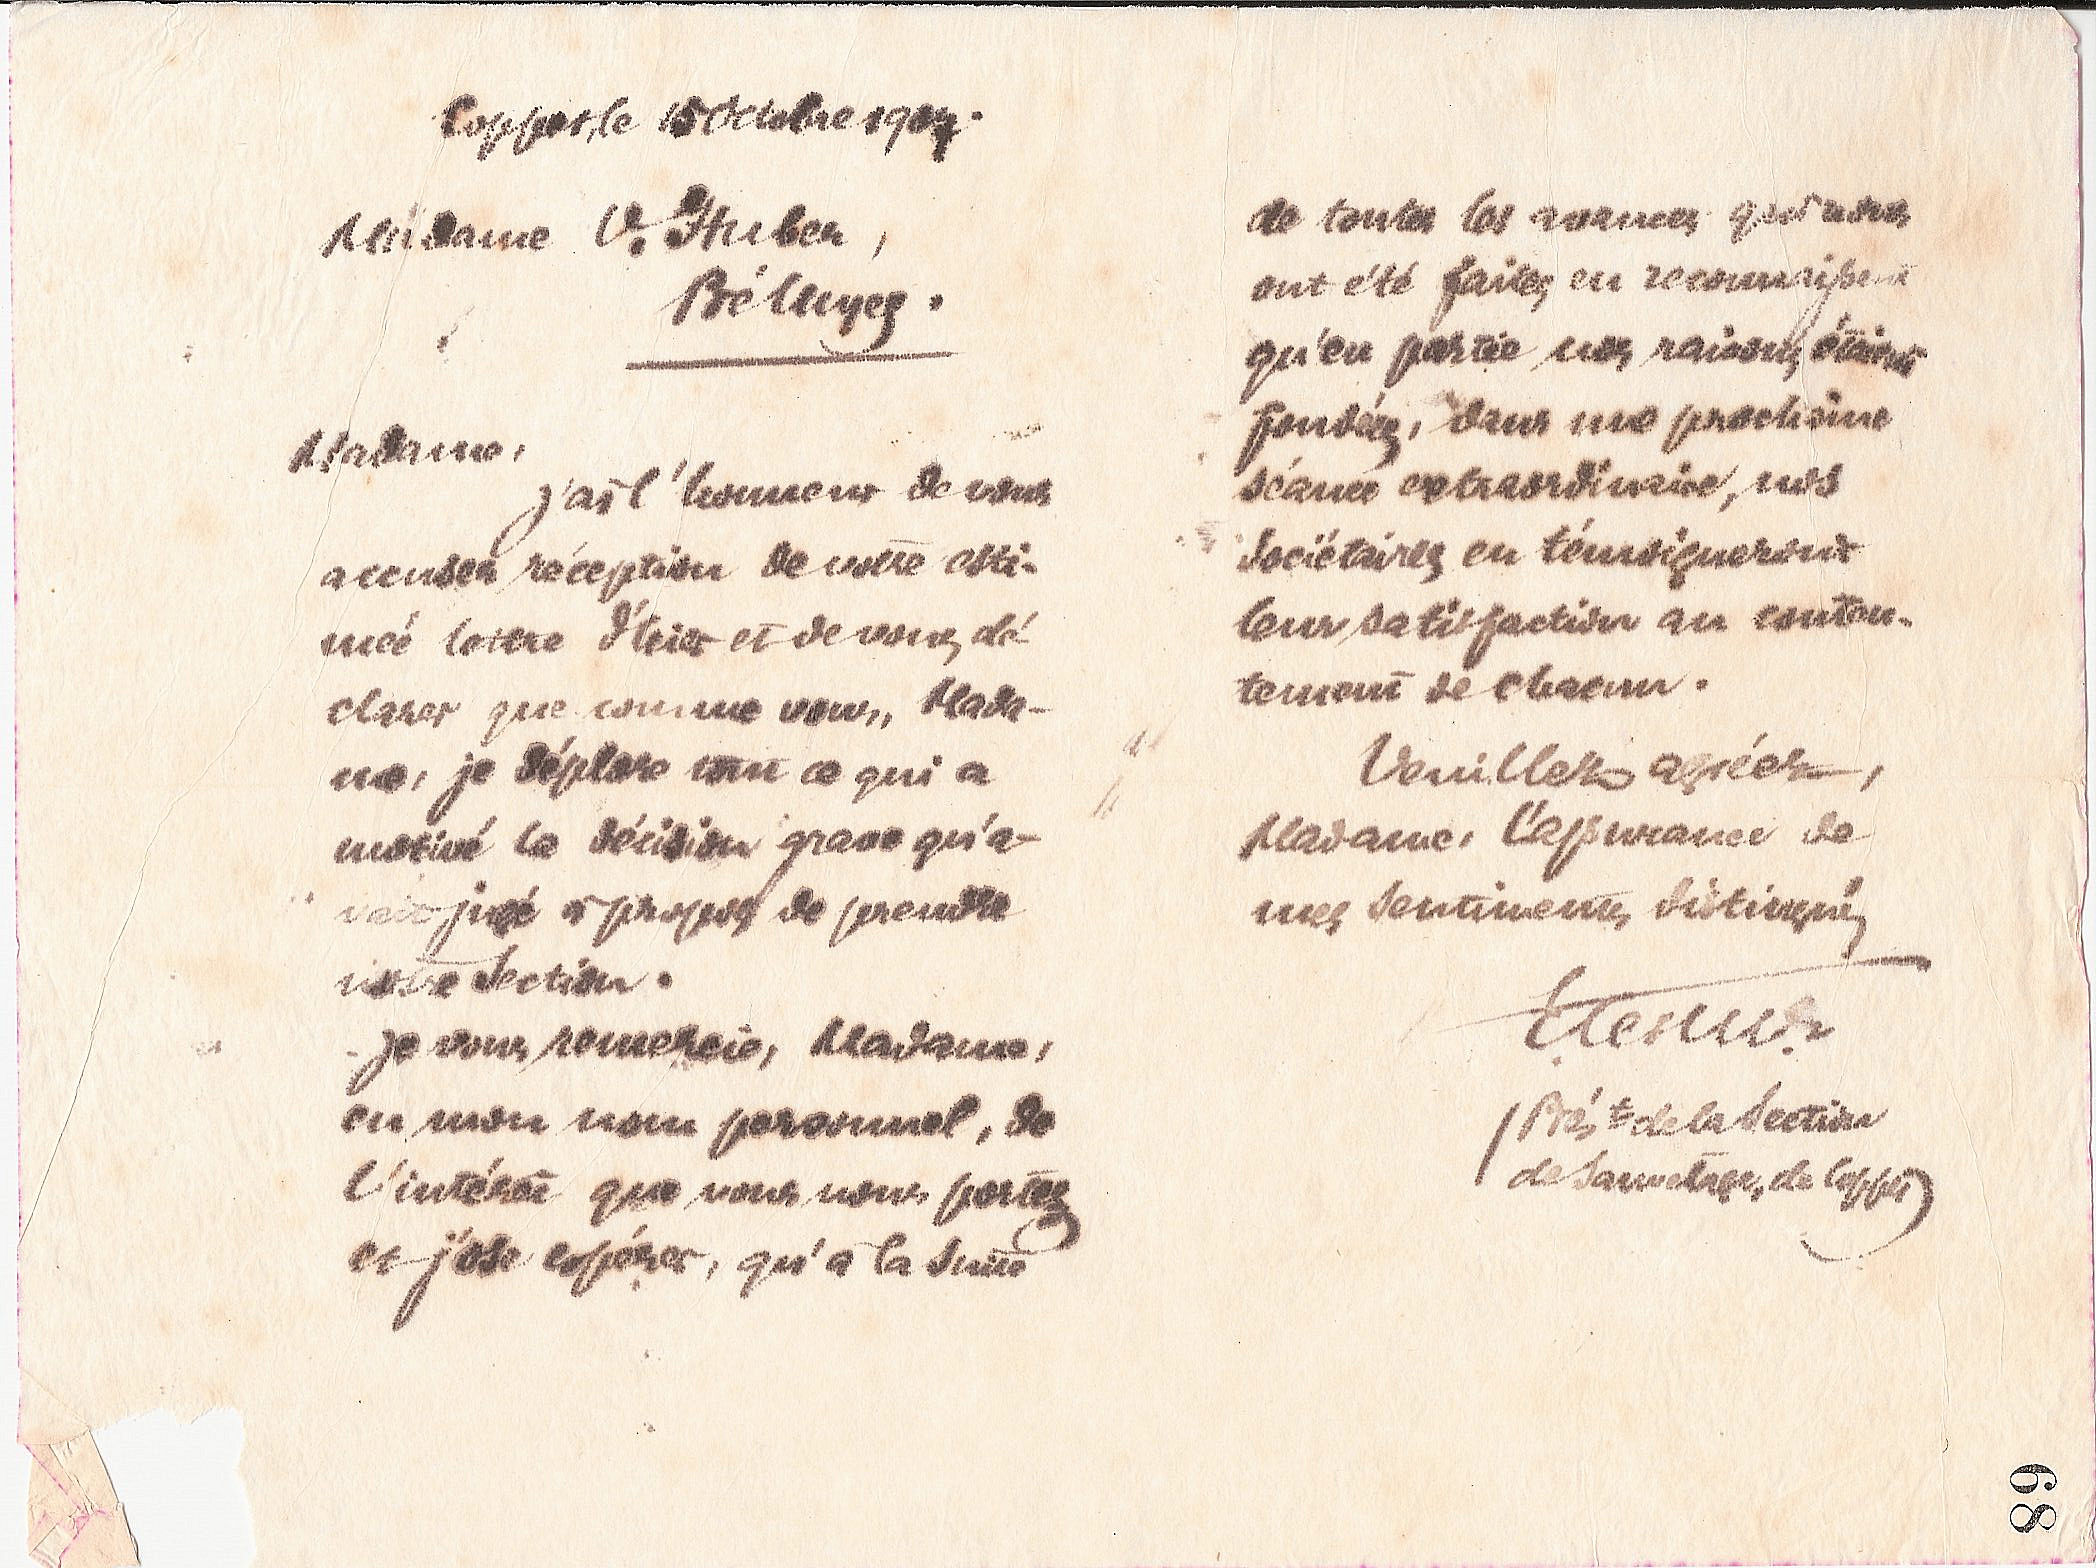 Coppet, le 15 Octobre 190
Madame V. Huber,
Bé
Madame,
j'ai l'honneur de vous
accuser réception de votre esti-
mée lettre d'hier et de vous dé-
clarer que comme vous, Mada-
me, je déplore tout ce qui a
motivé la décision grave qu'a-
vait jugé à propos de prendre
notre Section.
Je vous remercie, Madame,
en mon nom personnel, de
l'intérêt que vous nous portez
et j'ose espérer, qu'à la suite
de toutes les avances qui nous
ont été faites, en reconnaissant
qu'en partie nos raisons étaient
fondées, dans une prochaine
séance extraordinaire, nos
Sociétaires en témoigneront
leur satisfaction au conten-
tement de chacun.
Veuillez agréer,
Madame, l'assurance de
mes sentiments distingués
Prést de la Section
de Sauvetage, de Coppet
68